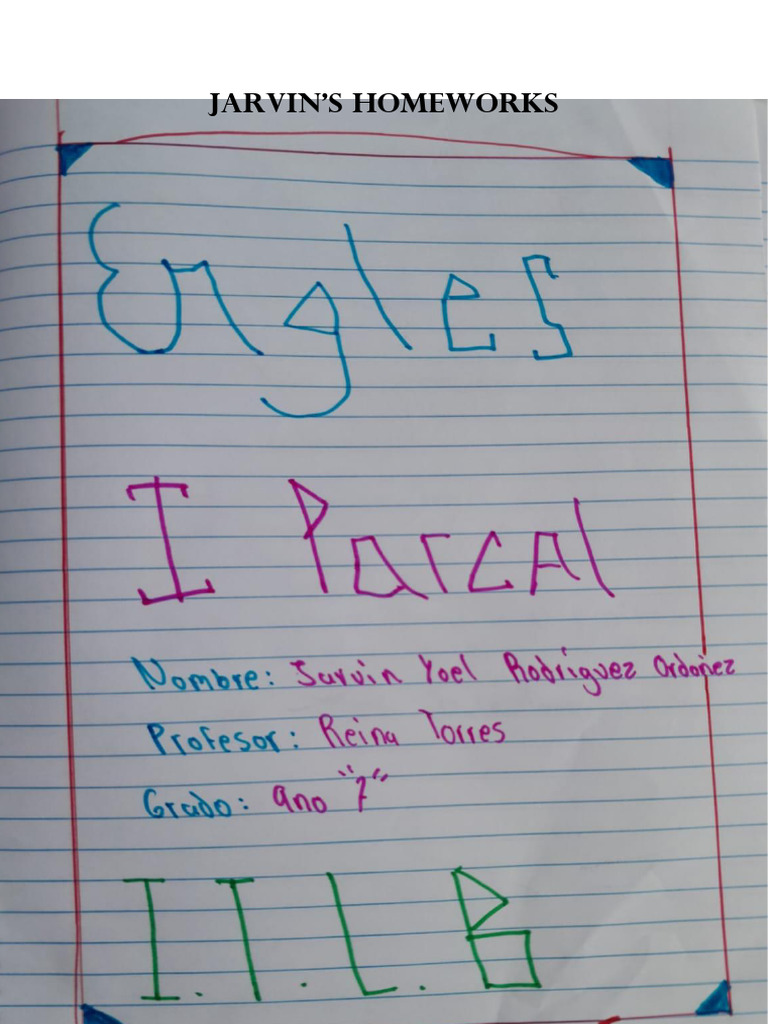 JARVIN'S HOMEWORKS
Engles
I Parcal
Nombre: Jarvin Yoel Rodriguez Ordoñez
Profesor: Reina Torres
Grado: ano "7"
I.T.L.B